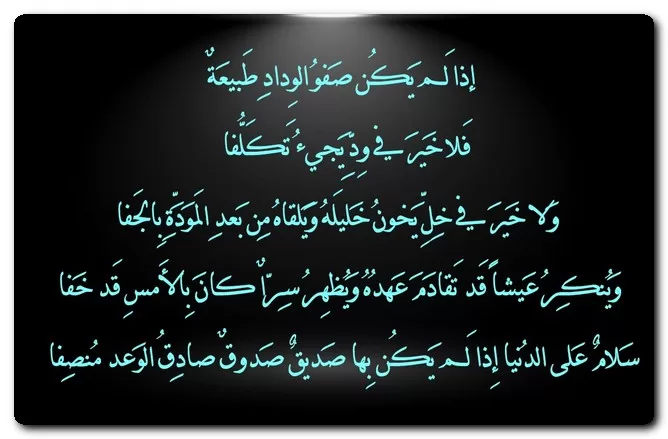 إِذا لَم يَكُن صَفوُ الوِدادِ طَبيعَةً
فَلا خَيرَ في وِدٍّ يَجيءُ تَكَلُّفا
وَلا خَيرَ في خِلٍّ يَخونُ خَليلَهُ وَيَلقاهُ مِن بَعدِ المَوَدَّةِ بِالجَفا
وَيُنكِرُ عَيشاً قَد تَقادَمَ عَهدُهُ وَيُظهِرُ سِرّاً كانَ بِالأَمسِ قَد خَفا
سَلامٌ عَلى الدُنيا إِذا لَم يَكُن بِها صَديقٌ صَدوقٌ صادِقُ الوَعدِ مُنصِفا